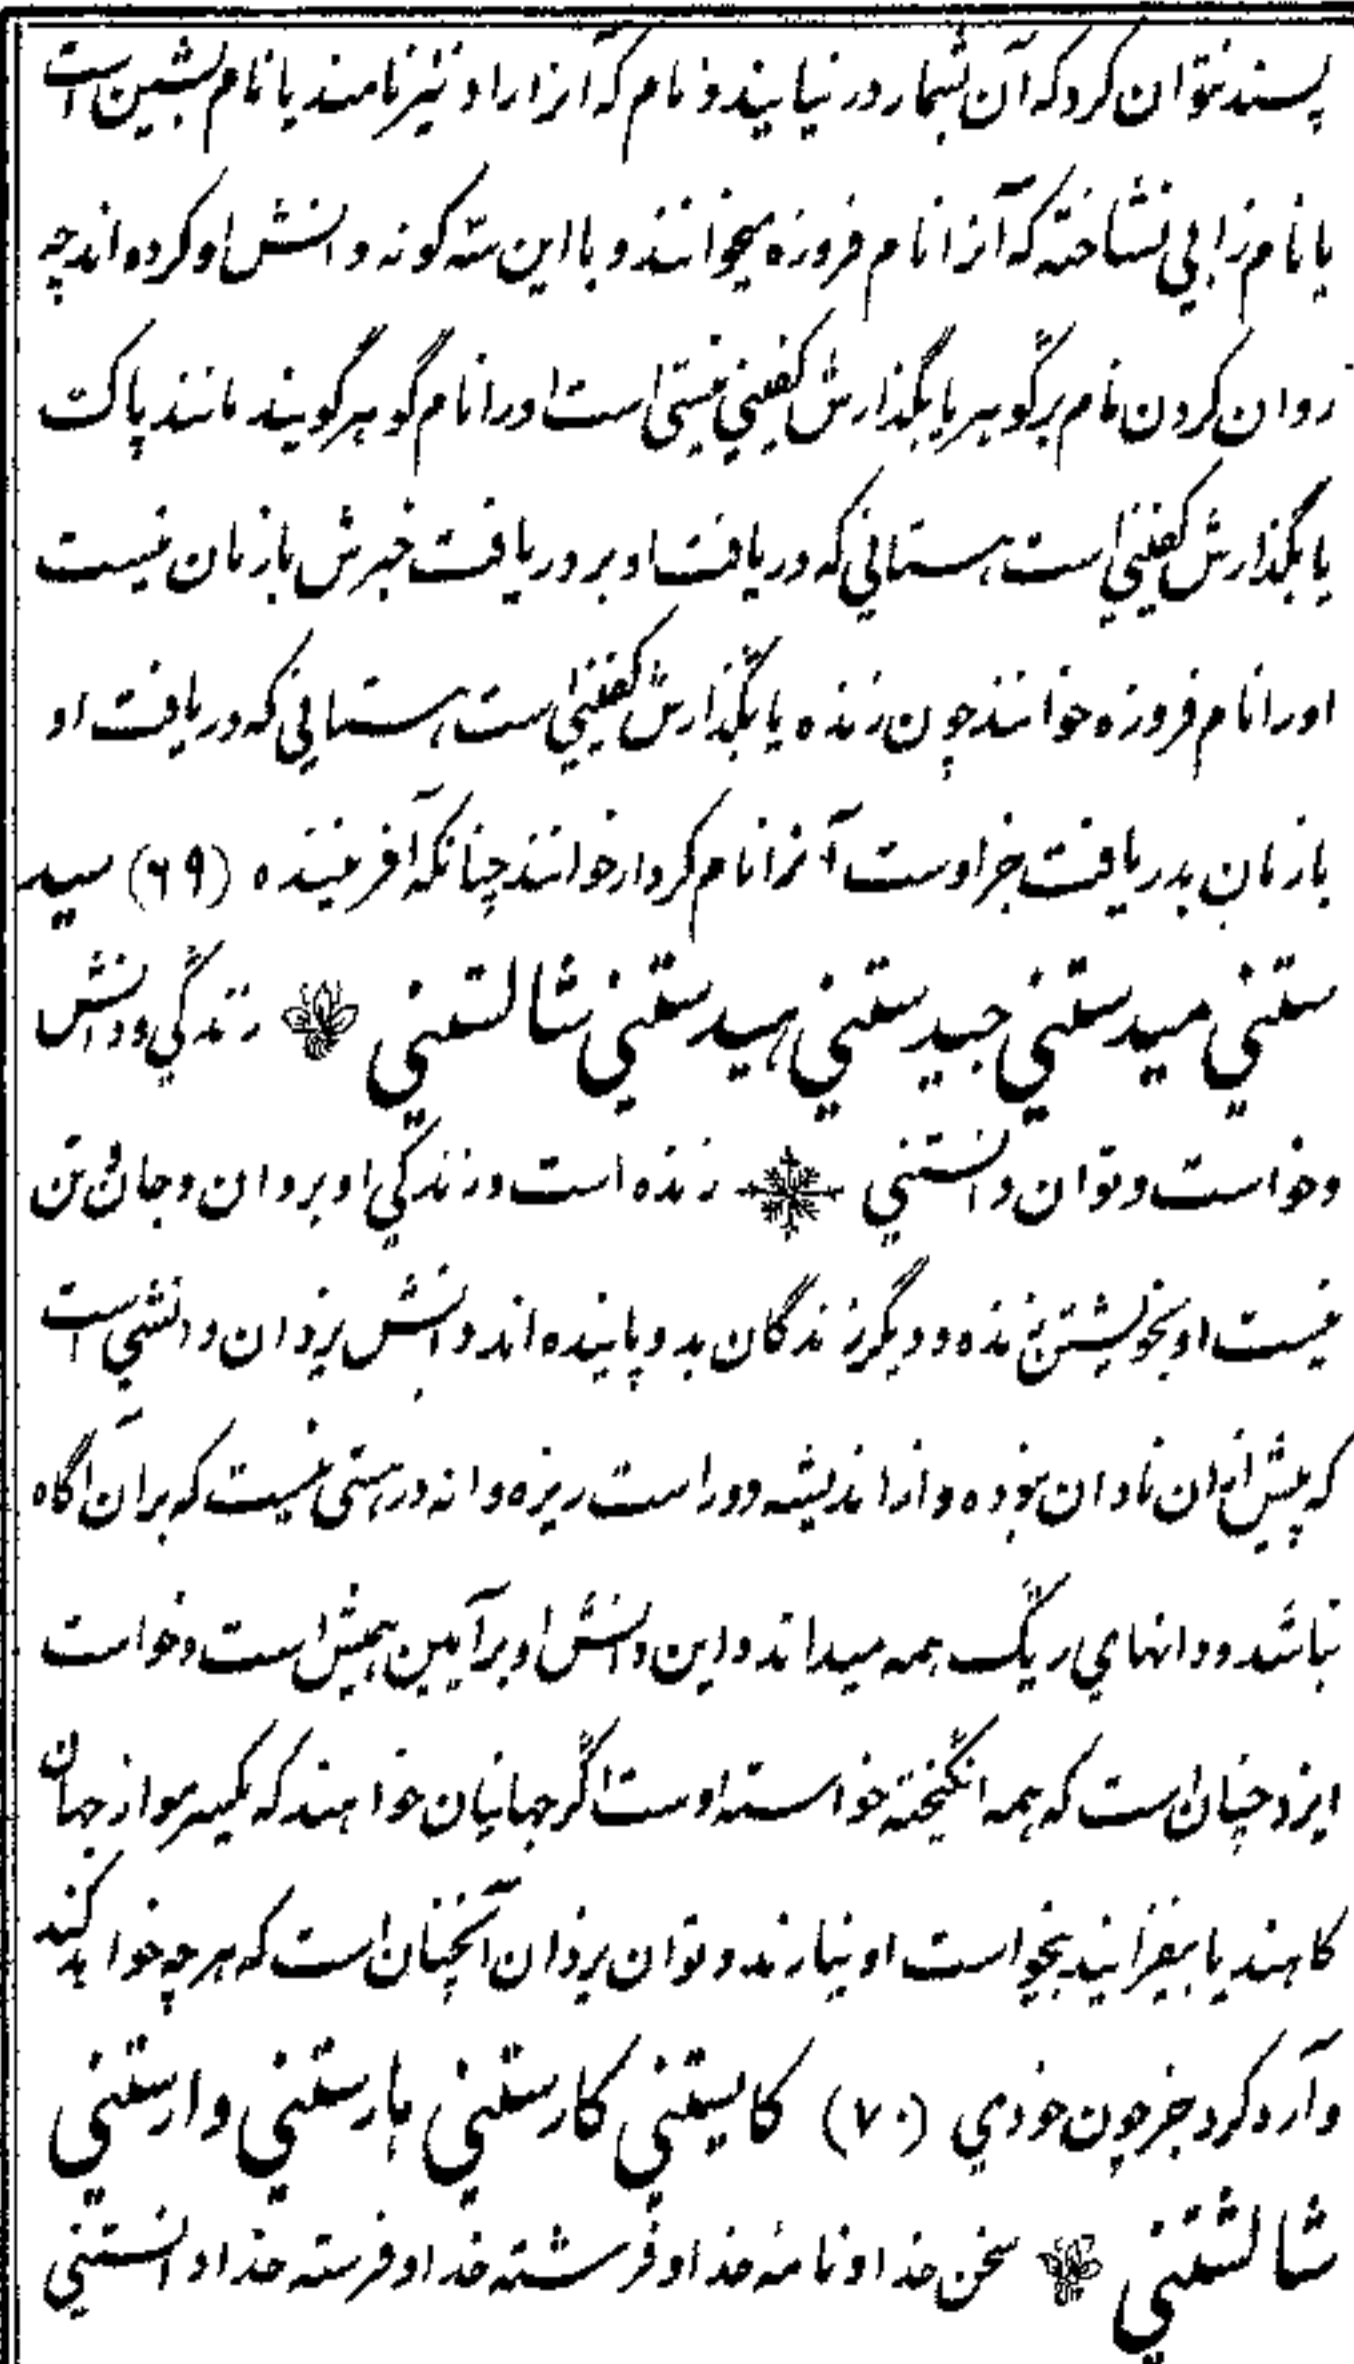 پسند نتوان کرد که آن بشمار در نیایند و نام که آنرا راد نیز نامند یا نام است
یا نام زابی نشاخته که آنرا نام فروزه میخوانند و با این سه کونه دانش او کرده اند چه
روان کردن نام بر گوهر یا بگذارش کفیننی نیستی است اورا نام گوهر گویند مانند پاک
یا بگذارش کفیننی است هستانی که دریافت او بر دریافت جزش بازمان نیست
اورا نام فروزه خوانند چون زنده یا بگذارش کفیننی است هستانی که دریافت او
بازمان بدریافت جز اوست آنرا نام کردار خوانند چنانکه آفریننده (۶۹) سید
ستنی میدستنی جیدستنی هیدستنی شالستنی زندگی و دانش
و خواست و توان دانستنی زنده است و زندگی او بروان و جان و تن
نیست او بخویشتن زنده و دیگر زندگان بدو پاینده اند و دانش یزدان دانشی است
که پیش ازان نادان نبوده و از اندیشه دور است ریزه دانه در هستی نیست که بران آگاه
نباشد و دانهای ریگ همه میداند و این دانش او بر آیین همیش است و خواست
ایزد چنان است که همه انگیخته خواسته اوست اگر جهانیان خواهند که یکسر مو از جهان
کاهند یا بیفزایند بیخواست او نیارند و توان یزدان آنچنان است که هر چه خواهد کند
و آرد کرد جز چون خودی (۷۰) کایستنی کارستنی بارستنی وارستنی
شالشتنی سخن خدا و نامه خدا و فرشته خدا و فرسته خدا دانستنی